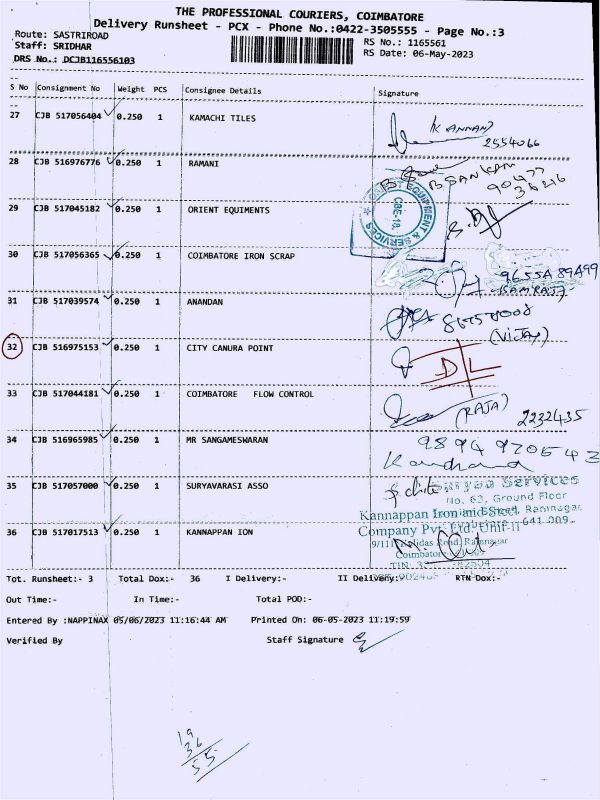 THE PROFESSIONAL COURIERS, COIMBATORE
Delivery Runsheet - PCX - Phone No.:0422-3505555 - Page No.:3
Route: SASTRIROAD
Staff: SRIDHAR
RS No.: 1165561
DRS No.: DCJB116556103
RS Date: 06-May-2023
S No Consignment No Weight PCS Consignee Details Signature
27 CJB 517056404 0.250 1 KAMACHI TILES KANNAN
2554066
28 CJB 516976776 0.250 1 RAMANI
29 CJB 517045182 0.250 1 ORIENT EQUIMENTS
EQUIPMENT & SERVICES
CBE-18.
30 CJB 517056365 0.250 1 COIMBATORE IRON SCRAP
31 CJB 517039574 0.250 1 ANANDAN
(VIJAY)
32 CJB 516975153 0.250 1 CITY CANURA POINT D/L
33 CJB 517044181 0.250 1 COIMBATORE FLOW CONTROL (RAJA) 2232435
34 CJB 516965985 0.250 1 MR SANGAMESWARAN
35 CJB 517057000 0.250 1 SURYAVARASI ASSO
Services
No. 63, Ground Floor
Ramnagar
641 009
36 CJB 517017513 0.250 1 KANNAPPAN ION
Kannappan Iron and Steel
Company Pvt. Ltd. Unit-II
Ramnagar
Coimbatore
Tot. Runsheet:- 3 Total Dox:- 36 I Delivery:- II Delivery:- RTN Dox:-
Out Time:- In Time:- Total POD:-
Entered By :NAPPINAX 05/06/2023 11:16:44 AM Printed On: 06-05-2023 11:19:59
Verified By Staff Signature
19
36
55